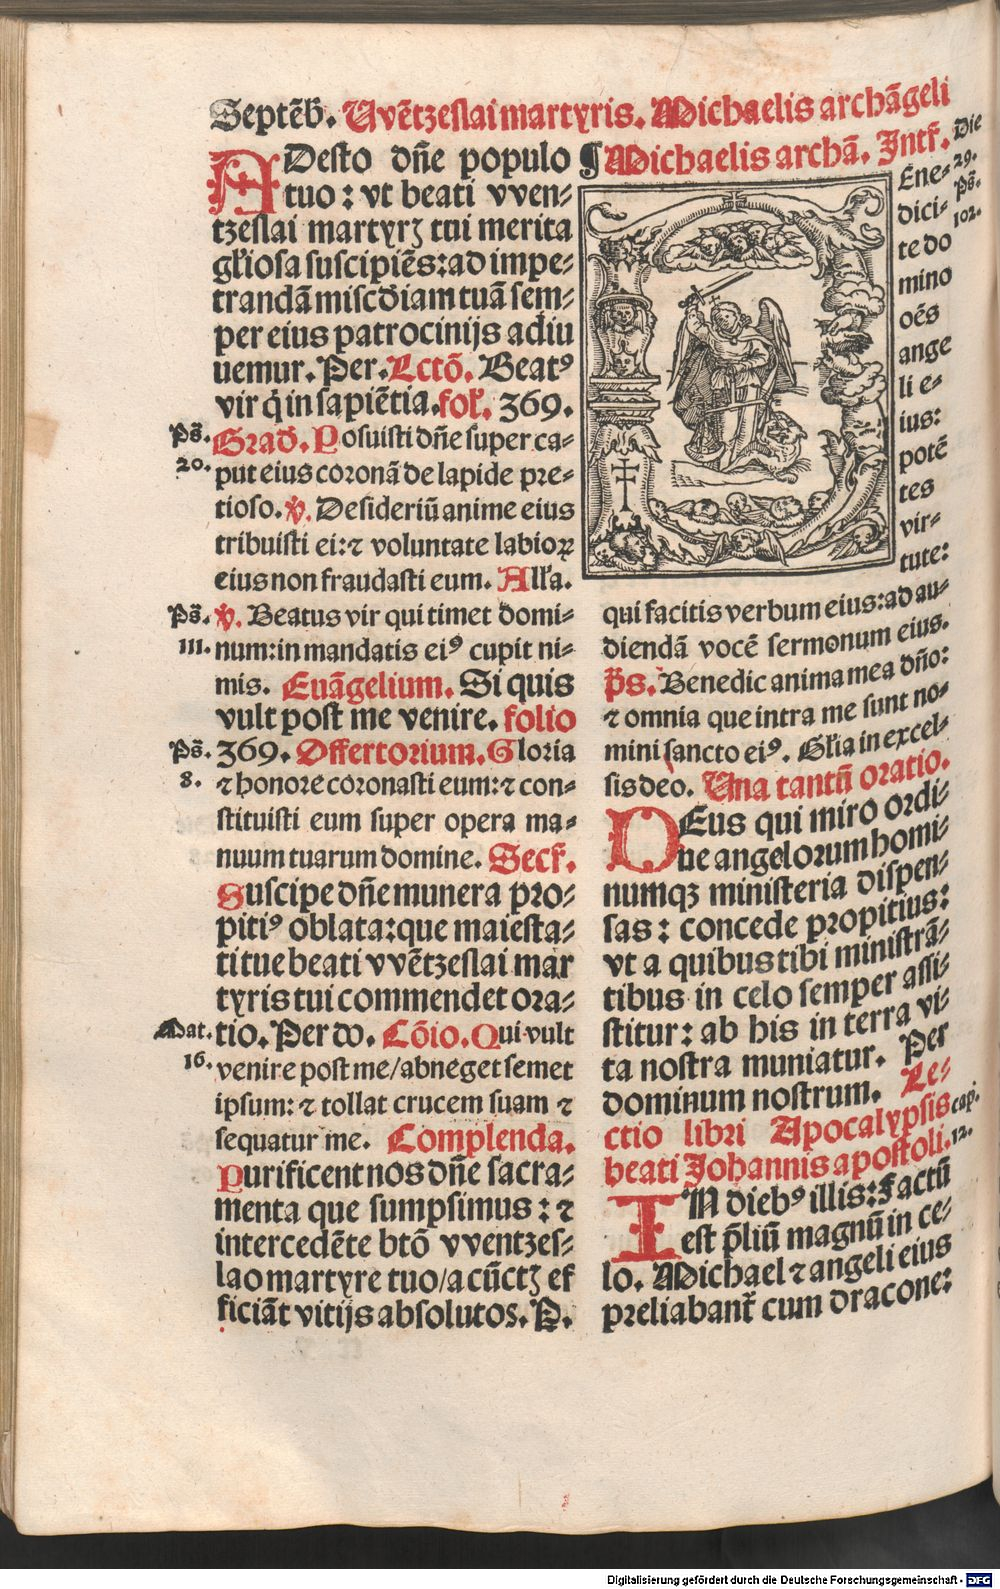 Septēb. Vvētzeslai martyris. Michaelis archāgeli
ADesto dn̄e populo
tuo: vt beati vven⸗
tzeslai martyrꝫ tui merita
gl̓iosa suscipiēs: ad impe⸗
trandā misc̄diam tuā sem⸗
per eius patrocinijs adiu
uemur. Per. Lctō. Beatꝰ
vir q̇ in sapiētia. fol̓. 369.
Ps̄. Grad̄. Posuisti dn̄e super ca⸗
20. put eius coronā de lapide pre⸗
tioso. ℣. Desideriū anime eius
tribuisti ei: ⁊ voluntate labioꝝ
eius non fraudasti eum. All̓a.
Ps̄. ℣. Beatus vir qui timet domi⸗
111. num: in mandatis eiꝰ cupit ni⸗
mis. Euāgelium. Si quis
vult post me venire. folio
Ps̄. 369. Offertorium. Gloria
8. ⁊ honore coronasti eum: ⁊ con⸗
stituisti eum super opera ma⸗
nuum tuarum domine. Secr̄.
Suscipe dn̄e munera pro⸗
pitiꝰ oblata: que maiesta⸗
ti tue beati vvētzeslai mar
tyris tui commendet ora⸗
Mat. tio. Per dō. Cōio. Qui vult
16. venire post me/abneget semet
ipsum: ⁊ tollat crucem suam ⁊
sequatur me. Complenda.
Purificent nos dn̄e sacra⸗
menta que sumpsimus: ⁊
intercedēte btō vventzes⸗
lao martyre tuo/a cūctꝫ ef
ficiāt vitijs absolutos. P.
¶ Michaelis archā. Intr̄. Die
29.
Ps̄.
102.
Ene⸗
dici⸗
te do
mino
oēs
ange
li e⸗
ius:
potē
tes
vir⸗
tute:
qui facitis verbum eius: ad au⸗
diendā vocē sermonum eius.
ps̄. Benedic anima mea dn̄o:
⁊ omnia que intra me sunt no⸗
mini sancto eiꝰ. Gl̓ia in excel⸗
sis deo. Una tantū oratio.
DEus qui miro ordi⸗
ne angelorum homi⸗
numqꝫ ministeria dispen⸗
sas: concede propitius:
vt a quibus tibi ministrā⸗
tibus in celo semper assi⸗
stitur: ab his in terra vi⸗
ta nostra muniatur. Per
dominum nostrum. Le⸗
ctio libri Apocalypsis cap.
beati Johannis apostoli. 12.
IN diebꝰ illis: Factū
est p̄liū magnū in ce⸗
lo. Michael ⁊ angeli eius
preliabant̄ cum dracone:
Digitalisierung gefördert durch die Deutsche Forschungsgemeinschaft - DFG